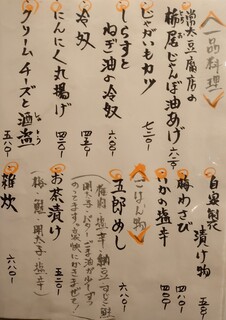 一品料理
常太豆腐店の
栃尾じゃんぼ油あげ 六八〇
じゃがいもカツ 七二〇
しらすと
ねぎ油の冷奴 六八〇
冷奴 四五〇
にんにく丸揚げ 四三〇
クリームチーズと酒盗 五八〇
自家製
漬け物 五八〇
梅わさび 四八〇
いかの塩辛 四八〇
ごはん物
五郎めし 六八〇
お茶漬け 五三〇
(梅・鮭・明太子・塩辛)
雑炊 六八〇